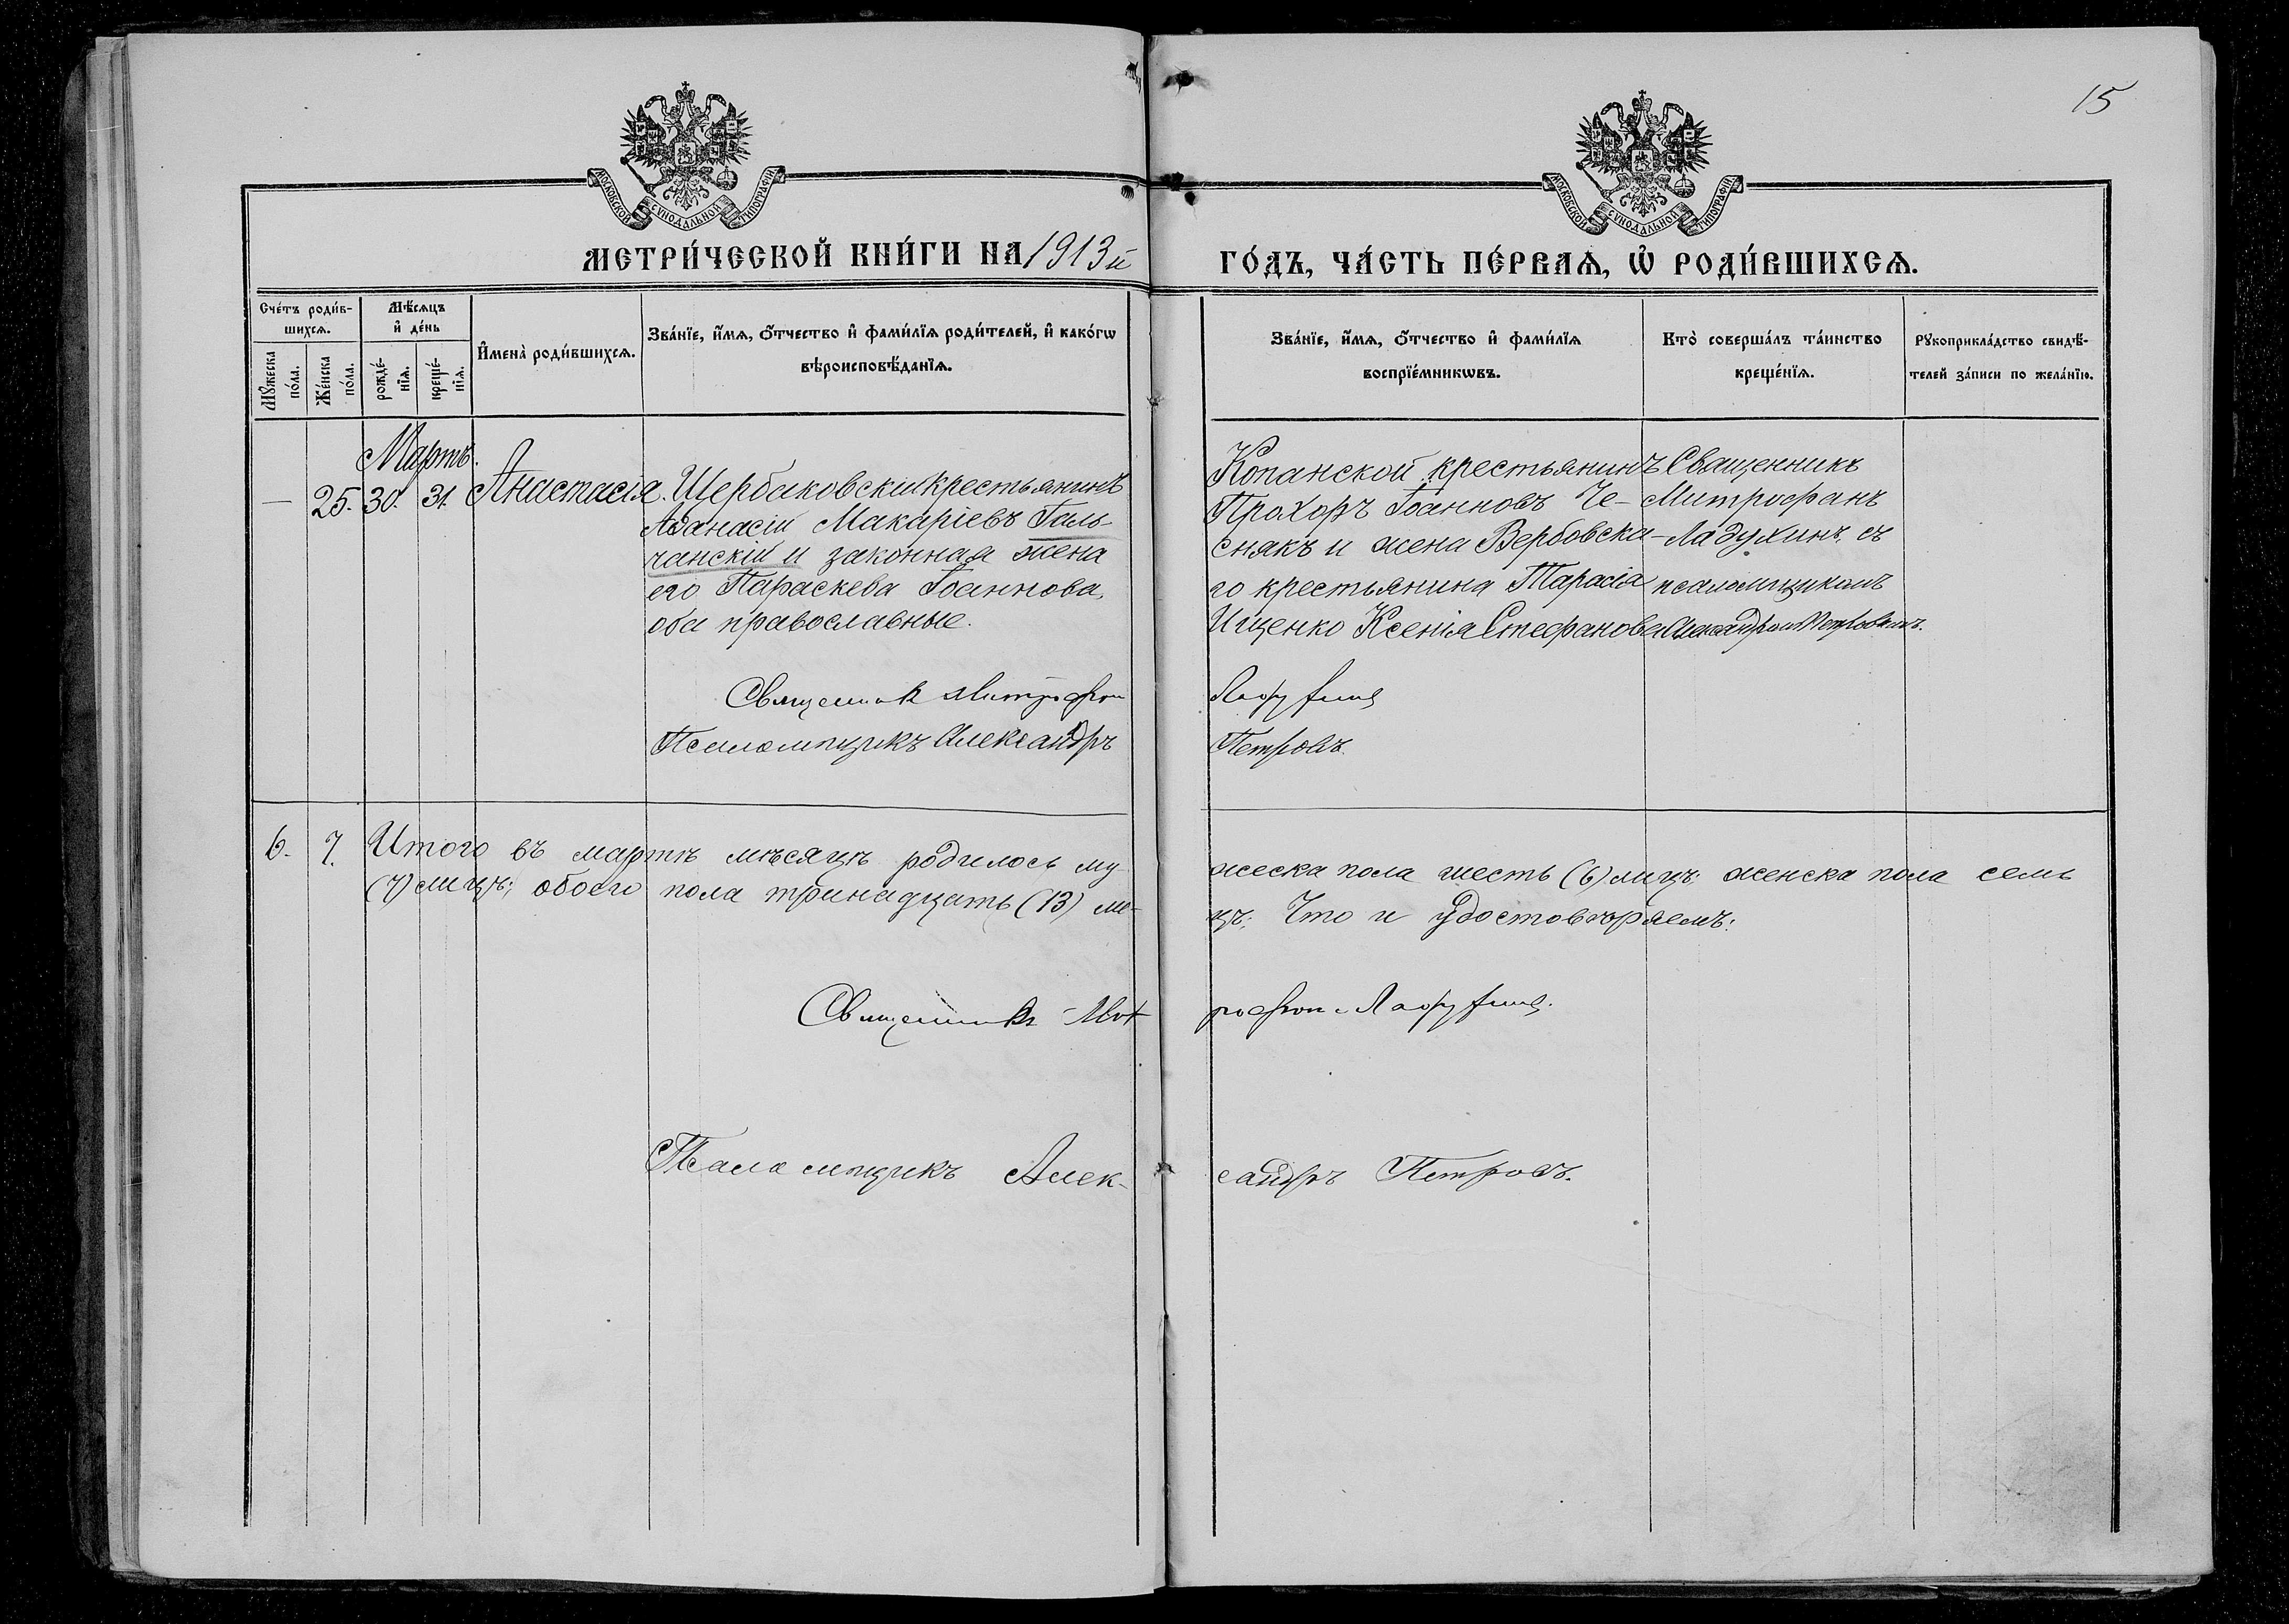 15
МОСКОВСКОЙ СѴНОДАЛЬНОЙ ТИПОГРАФІИ
МОСКОВСКОЙ СѴНОДАЛЬНОЙ ТИПОГРАФІИ
МЕТРИ́ЧЕСКОЙ КНИ́ГИ НА 1913й ГО́ДЪ, ЧА́СТЬ ПЕ́РВАѦ, Ѡ҆ РОДИ́ВШИХСѦ.
Сче́тъ роди́в-
шихсѧ.
Мꙋжеска
по́ла.
Же́нска
по́ла.
Мѣ́сѧцъ
и҆ де́нь
рожде́-
нїѧ.
креще́-
нїѧ.
И҆мена̀ роди́вшихсѧ.
Зва́нїе, и҆́мѧ, ѻ҆́тчество и҆ фами́лїѧ роди́телей, и҆ како́гѡ
вѣроисповѣ́данїѧ.
Зва́нїе, и҆́мѧ, ѻ҆́тчество и҆ фами́лїѧ
воспрїе́мникѡвъ.
Кто̀ соверша́лъ та́инство
креще́нїѧ.
Рꙋкоприкла́дство свидѣ́-
телей за́писи по жела́нїю.
Мартъ.
— 25. 30. 31. Анастасія.
Щербаковскій крестьянинъ
Аѳанасій Макаріевъ Галь-
чанскій и законная жена
его Параскева Іоаннова,
оба православные.
Копанской крестьянинъ
Прохоръ Іоанновъ Че-
снякъ и жена Вербовска-
го крестьянина Тарасія
Ищенко Ксенія Стефанова
Священникъ
Митрофанъ
Ладухинъ, съ
псаломщикомъ
Александромъ Петровымъ.
Священникъ Митрофанъ Ладухинъ
Псаломщикъ Александръ Петровъ.
6. 7. Итого въ мартѣ мѣсяцѣ родилось му-
жеска пола шесть (6) лицъ; женска пола семь
(7) лицъ; обоего пола тринадцать (13) ли-
цъ; Что и удостовѣряемъ:
Священникъ Митрофанъ Ладухинъ.
Псаломщикъ Алек-
сандръ Петровъ.